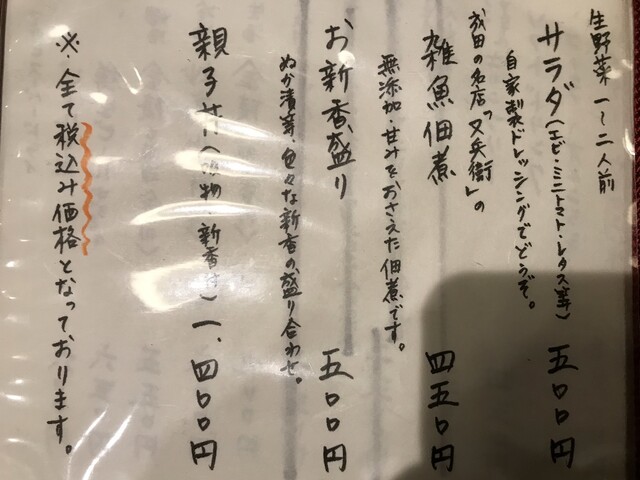 生野菜 一〜二人前
サラダ(エビ・ミニトマト・レタス等) 五〇〇円
自家製ドレッシングでどうぞ。
成田の名店「又兵衛」の
雑魚佃煮 四五〇円
無添加・甘みをおさえた佃煮です。
お新香盛り 五〇〇円
ぬか漬等、色々な新香の盛り合わせ。
親子丼(吸物・新香付) 一、四〇〇円
※全て税込み価格となっております。